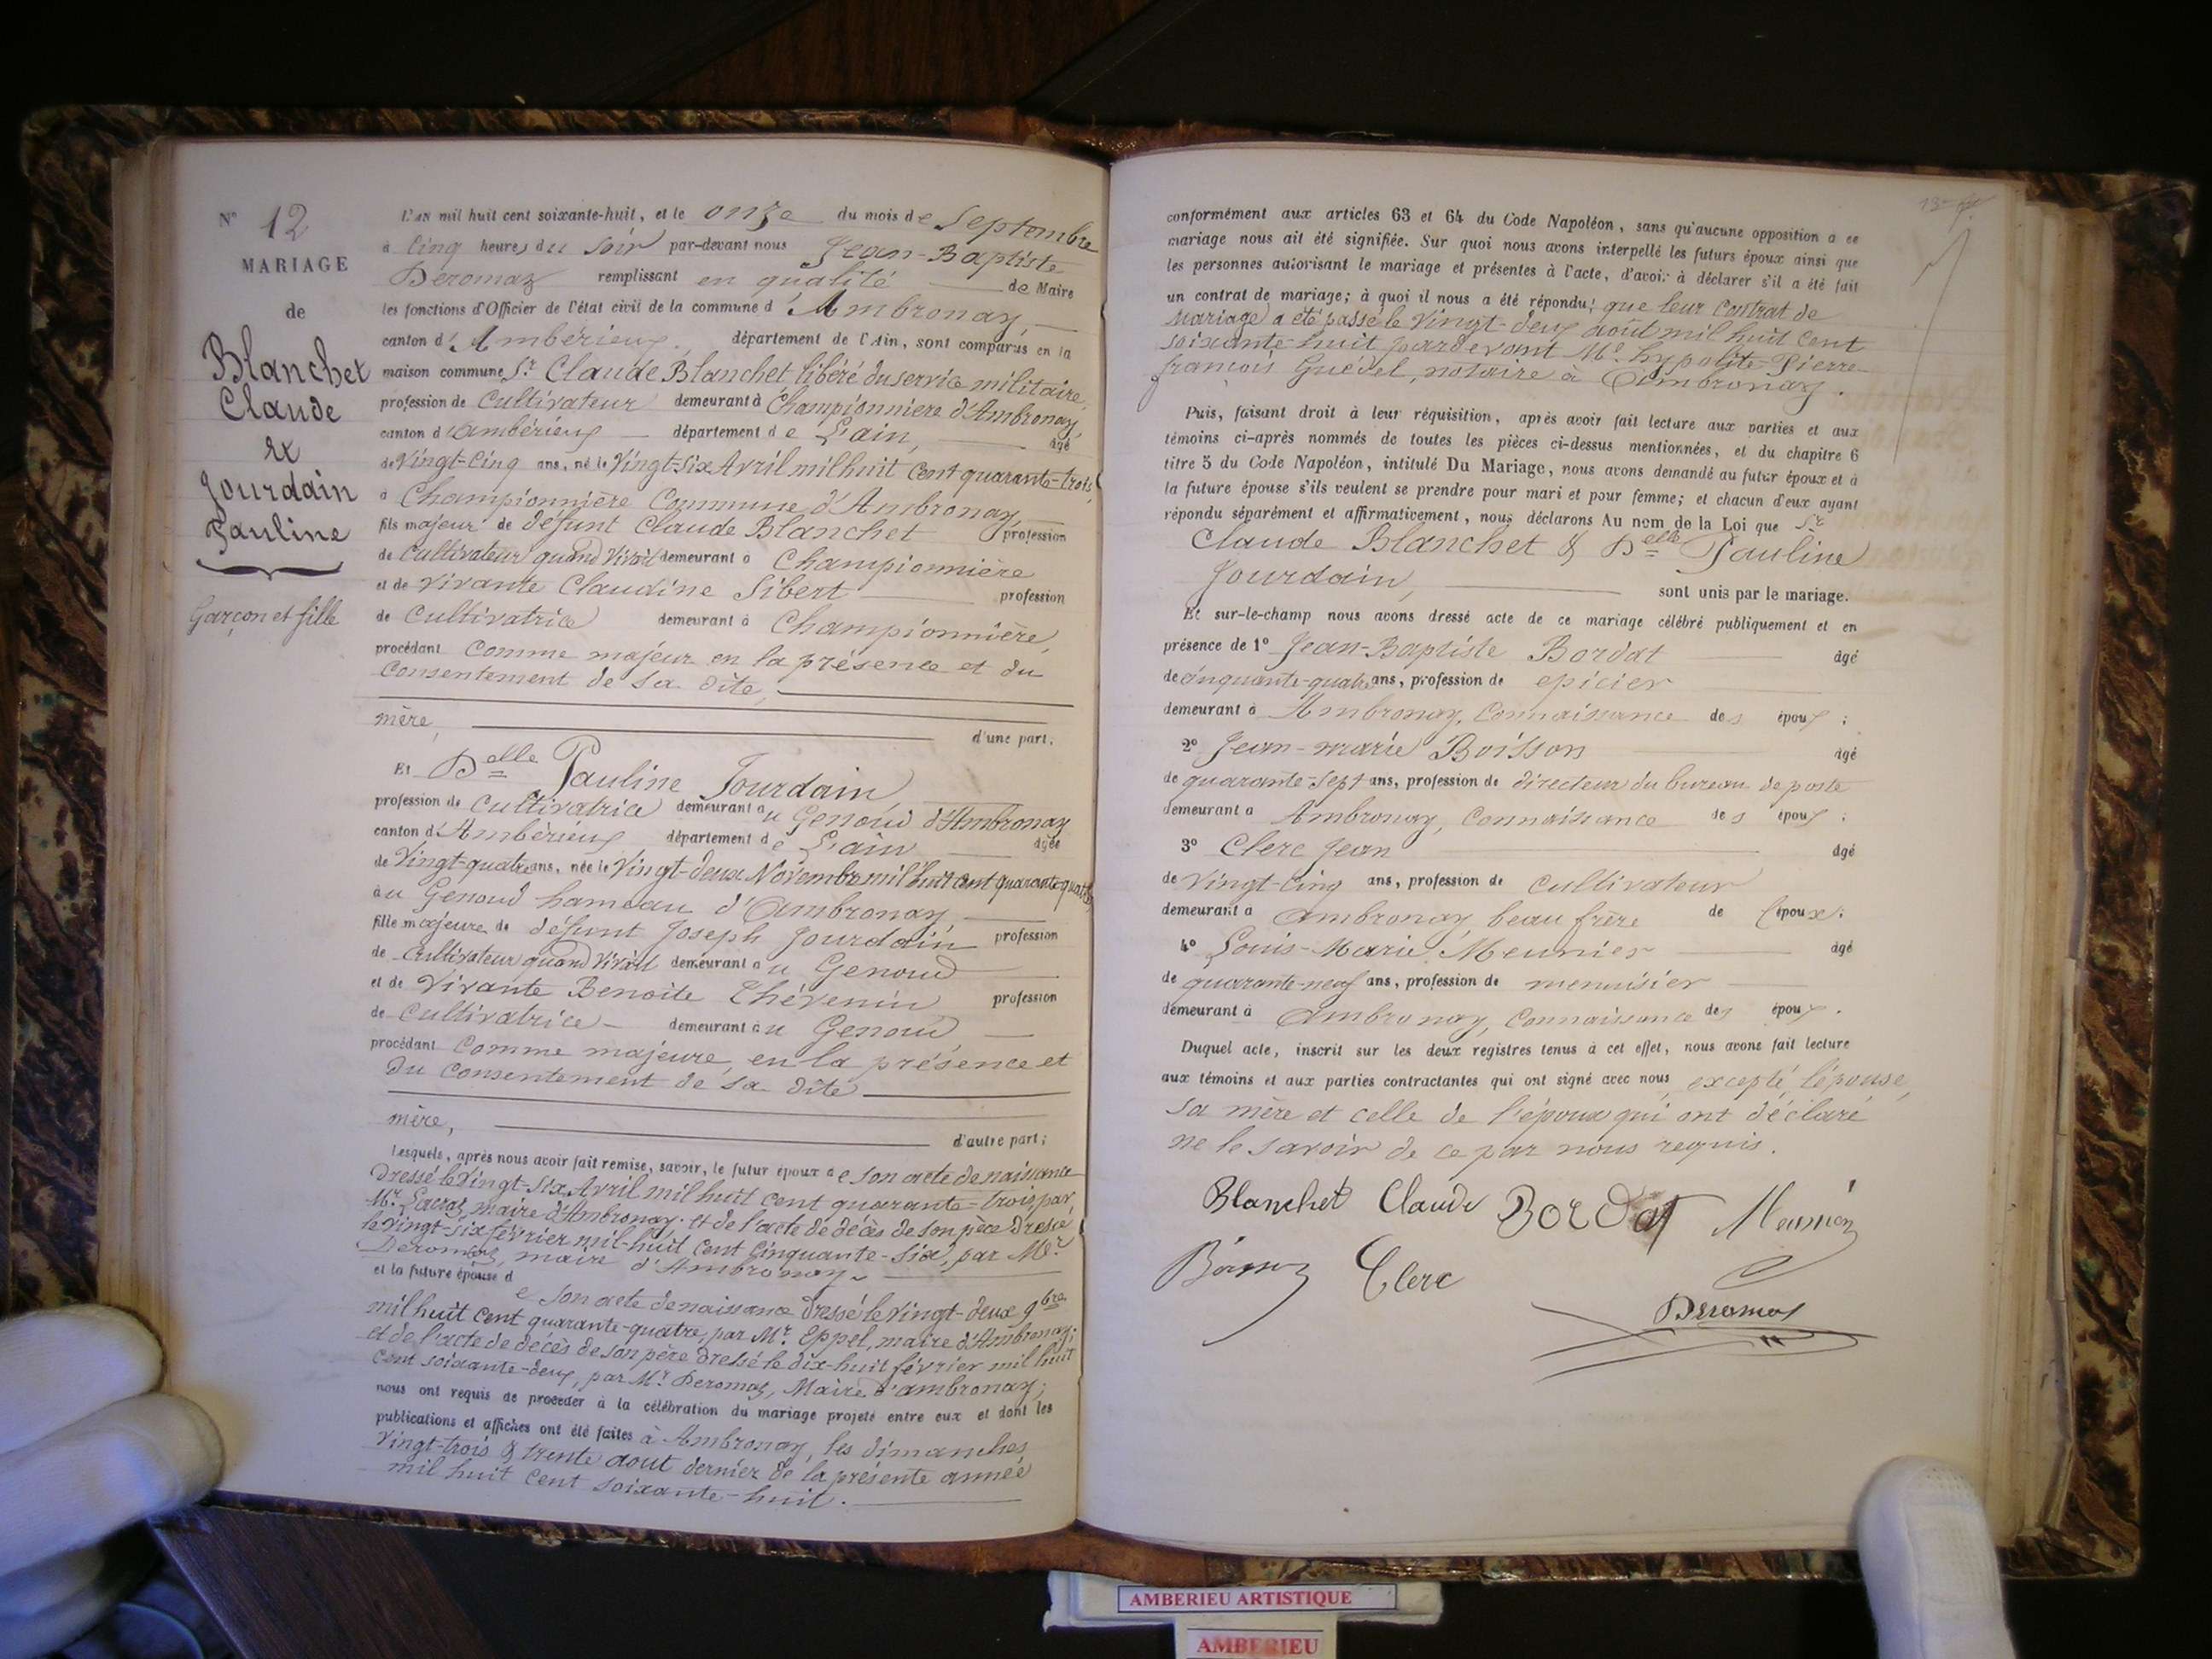 N° 12
MARIAGE
de
Blanchet
Claude
et
Jourdain
Pauline
Garçon et fille
L'AN mil huit cent soixante-huit, et le onze du mois de Septembre
à Cinq heures du Soir par-devant nous Jean-Baptiste
Deromas remplissant en qualité de Maire
les fonctions d'Officier de l'état civil de la commune d'Ambronay,
canton d'Ambérieux, département de l'Ain, sont comparus en la
maison commune Sr Claude Blanchet libéré du service militaire,
profession de Cultivateur demeurant à Championniere d'Ambronay,
canton d'ambérieux département de L'ain, âgé
de Vingt-Cinq ans, né le Vingt-Six Avril mil huit Cent quarante-trois,
à Championnière Commune d'Ambronay,
fils majeur de défunt Claude Blanchet profession
de Cultivateur quand Vivait demeurant à Championnière
et de Vivante Claudine Sibert profession
de Cultivatrice demeurant à Championnière,
procédant Comme majeur en la présence et du
Consentement de Sa dite,
mère, d'une part.
Et Delle Pauline Jourdain,
profession de Cultivatrice demeurant au Genoud d'Ambronay
canton d'Ambérieux département de L'ain âgée
de Vingt-quatre ans, née le Vingt-deux Novembre mil huit cent quarante-quatre,
au Genoud hameau d'Ambronay,
fille majeure de défunt Joseph Jourdain profession
de Cultivateur quand Vivait demeurant au Genoud
et de Vivante Benoîte Thévenin profession
de Cultivatrice demeurant au Genoud
procédant Comme majeure, en la présence et
du Consentement de Sa dite
mère, d'autre part;
Lesquels, après nous avoir fait remise, savoir, le futur époux de Son acte de naissance
Dressé le Vingt-Six Avril mil huit cent quarante-trois, par
Mr. maire d'Ambronay. Et de l'acte de décès de Son père Dressé
le Vingt-Six février mil-huit Cent Cinquante-Six, par Mr
Deromas, maire d'Ambronay.
et la future épouse de Son acte de naissance Dressé le Vingt-deux 9bre
mil huit Cent quarante-quatre, par Mr. Eppel, maire d'Ambronay;
et de l'acte de décès de Son père Dressé le dix-huit février mil huit
Cent soixante-deux, par Mr Deromas, Maire d'ambronay;
nous ont requis de procéder à la célébration du mariage projeté entre eux et dont les
publications et affiches ont été faites à Ambronay, les dimanches
Vingt-trois & trente aout dernier de la présente année
mil huit Cent soixante-huit.
conformément aux articles 63 et 64 du Code Napoléon, sans qu'aucune opposition à ce
mariage nous ait été signifiée. Sur quoi nous avons interpellé les futurs époux ainsi que
les personnes autorisant le mariage et présentes à l'acte, d'avoir à déclarer s'il a été fait
un contrat de mariage; à quoi il nous a été répondu: que leur Contrat de
Mariage a été passé le Vingt-deux aout mil huit Cent
soixante-huit pardevant Me hypolite-Pierre-
françois Guédel, notaire à Ambronay.
Puis, faisant droit à leur réquisition, après avoir fait lecture aux parties et aux
témoins ci-après nommés de toutes les pièces ci-dessus mentionnées, et du chapitre 6
titre 5 du Code Napoléon, intitulé Du Mariage, nous avons demandé au futur époux et à
la future épouse s'ils veulent se prendre pour mari et pour femme; et chacun d'eux ayant
répondu séparément et affirmativement, nous déclarons Au nom de la Loi que Sr
Claude Blanchet & Delle Pauline
Jourdain, sont unis par le mariage.
Et sur-le-champ nous avons dressé acte de ce mariage célébré publiquement et en
présence de 1° Jean-Baptiste Bordat âgé
de Cinquante-quatre ans, profession de epicier
demeurant à Ambronay, Connaissance des époux;
2° Jean-marie Boisson âgé
de quarante-sept ans, profession de directeur du bureau de poste
demeurant à Ambronay, Connaissance des époux;
3° Clerc Jean âgé
de Vingt-Cinq ans, profession de Cultivateur
demeurant à Ambronay, beau frère de l'époux;
4° Louis-Marie Meunier âgé
de quarante-neuf ans, profession de menuisier
demeurant à Ambronay, Connaissance des époux.
Duquel acte, inscrit sur les deux registres tenus à cet effet, nous avons fait lecture
aux témoins et aux parties contractantes qui ont signé avec nous, excepté l'épouse,
Sa mère et celle de l'époux qui ont déclaré
ne le savoir de ce par nous requis.
Blanchet Claude Bordat Meunier
Boisson Clerc
Deromas
AMBERIEU ARTISTIQUE
AMBERIEU